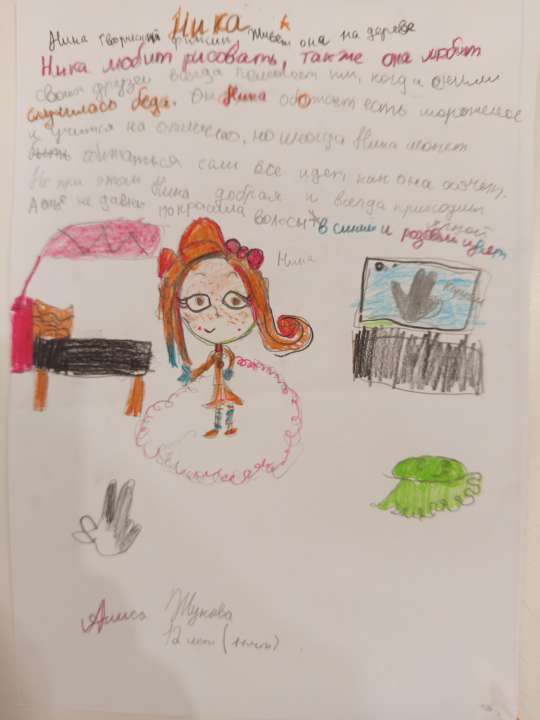 Ника
Ника творческий живёт она на дереве
Ника любит рисовать, также она любит
своих друзей всегда помогает им, когда с ними
случилась беда. Она Ника обожает есть мороженое
и учится на отлично, но иногда Ника может
если все идет как она хочет.
Но при этом Ника добрая и всегда приходит
А ещё не давно покрасила волосы в синий и розовый цвет
Ника
Алиса Жукова
12 лет